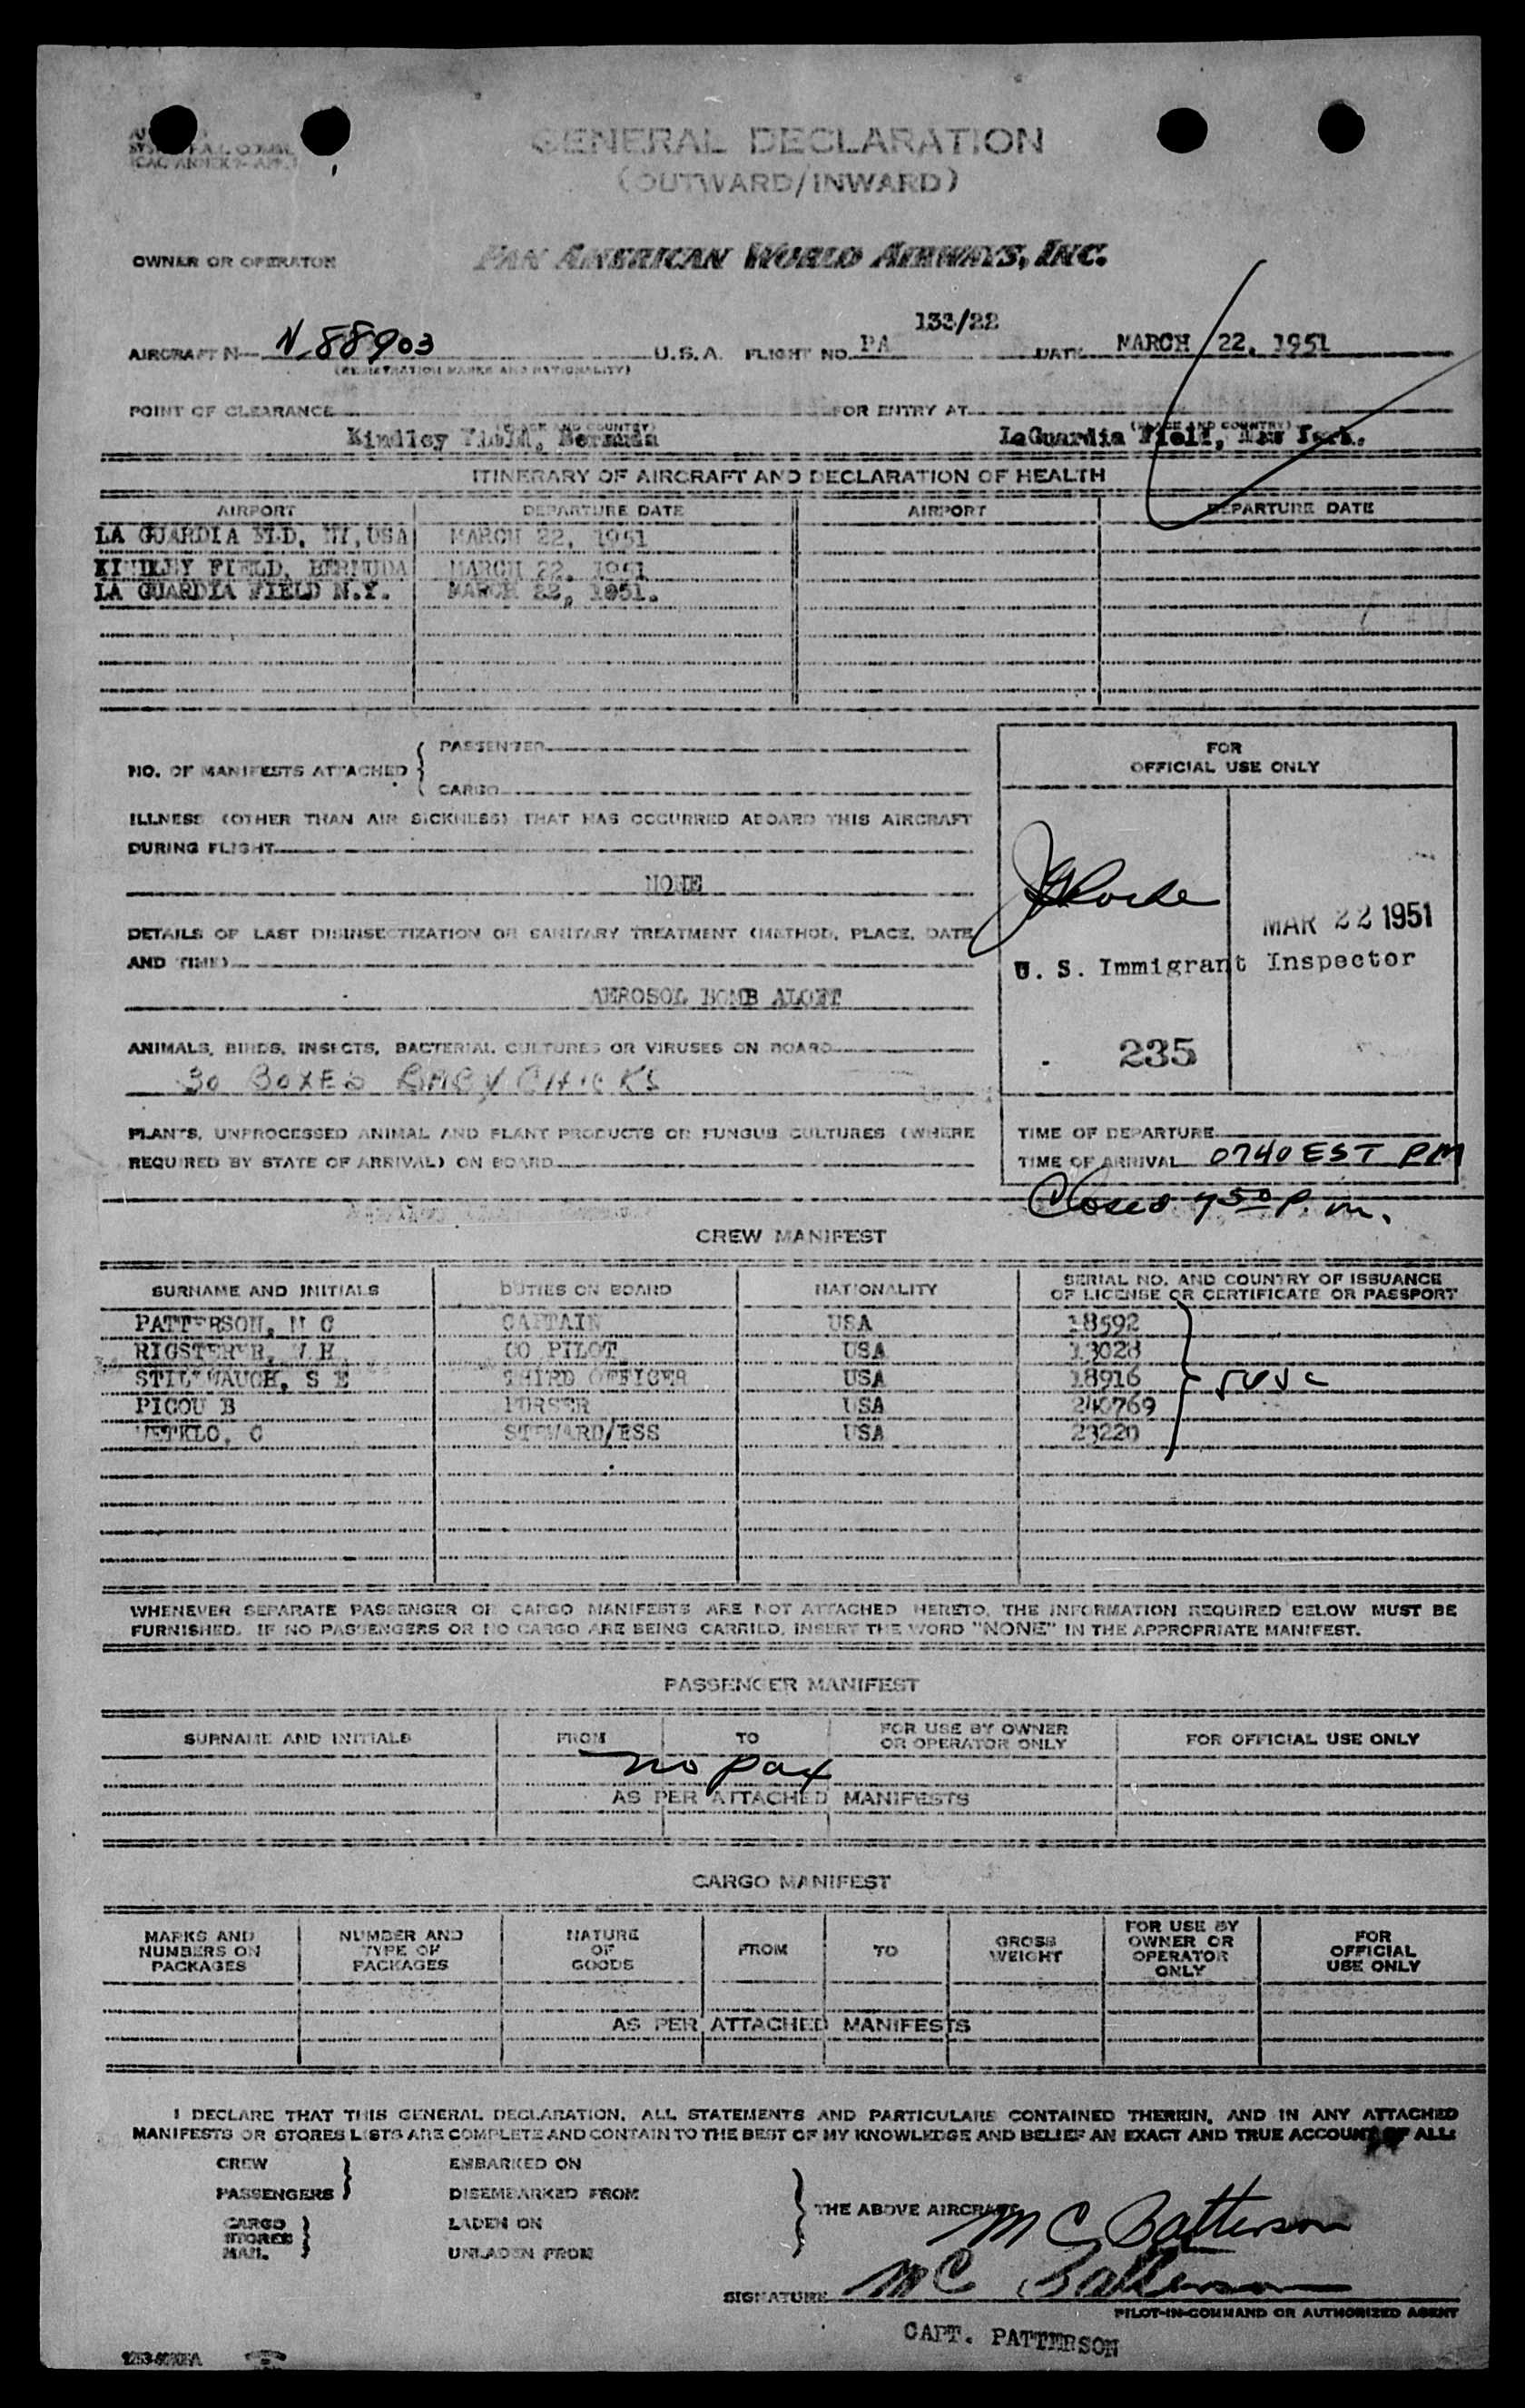 GENERAL DECLARATION
(OUTWARD/INWARD)
OWNER OR OPERATOR PAN AMERICAN WORLD AIRWAYS, INC.
AIRCRAFT N- N 88903 U.S.A. FLIGHT NO. PA 133/22 DATE MARCH 22, 1951
(REGISTRATION MARKS AND NATIONALITY)
POINT OF CLEARANCE FOR ENTRY AT
(PLACE AND COUNTRY) (PLACE AND COUNTRY)
Kindley Field, Bermuda LaGuardia Field, New York.
ITINERARY OF AIRCRAFT AND DECLARATION OF HEALTH
AIRPORT DEPARTURE DATE AIRPORT DEPARTURE DATE
LA GUARDIA FLD, NY, USA MARCH 22, 1951
KINDLEY FIELD, BERMUDA MARCH 22, 1951
LA GUARDIA FIELD N.Y. MARCH 22, 1951.
NO. OF MANIFESTS ATTACHED { PASSENGER
CARGO
FOR
OFFICIAL USE ONLY
ILLNESS (OTHER THAN AIR SICKNESS) THAT HAS OCCURRED ABOARD THIS AIRCRAFT
DURING FLIGHT
NONE
DETAILS OF LAST DISINSECTIZATION OR SANITARY TREATMENT (METHOD, PLACE, DATE
AND TIME)
MAR 22 1951
U. S. Immigrant Inspector
AEROSOL BOMB ALOFT
ANIMALS, BIRDS, INSECTS, BACTERIAL CULTURES OR VIRUSES ON BOARD
235
30 BOXES BABY CHICKS
PLANTS, UNPROCESSED ANIMAL AND PLANT PRODUCTS OR FUNGUS CULTURES (WHERE
REQUIRED BY STATE OF ARRIVAL) ON BOARD
TIME OF DEPARTURE
TIME OF ARRIVAL 0740 EST PM
Closed 750 p.m.
CREW MANIFEST
SURNAME AND INITIALS DUTIES ON BOARD NATIONALITY SERIAL NO. AND COUNTRY OF ISSUANCE
OF LICENSE OR CERTIFICATE OR PASSPORT
PATTERSON, M C CAPTAIN USA 18592
CO PILOT USA 13028
S E THIRD OFFICER USA 18916
PICOU B PURSER USA 240769
C STEWARD/ESS USA 23220
WHENEVER SEPARATE PASSENGER OR CARGO MANIFESTS ARE NOT ATTACHED HERETO, THE INFORMATION REQUIRED BELOW MUST BE
FURNISHED. IF NO PASSENGERS OR NO CARGO ARE BEING CARRIED, INSERT THE WORD "NONE" IN THE APPROPRIATE MANIFEST.
PASSENGER MANIFEST
SURNAME AND INITIALS FROM TO FOR USE BY OWNER
OR OPERATOR ONLY FOR OFFICIAL USE ONLY
no pax
AS PER ATTACHED MANIFESTS
CARGO MANIFEST
MARKS AND
NUMBERS ON
PACKAGES
NUMBER AND
TYPE OF
PACKAGES
NATURE
OF
GOODS
FROM
TO
GROSS
WEIGHT
FOR USE BY
OWNER OR
OPERATOR
ONLY
FOR
OFFICIAL
USE ONLY
AS PER ATTACHED MANIFESTS
I DECLARE THAT THIS GENERAL DECLARATION, ALL STATEMENTS AND PARTICULARS CONTAINED THEREIN, AND IN ANY ATTACHED
MANIFESTS OR STORES LISTS ARE COMPLETE AND CONTAIN TO THE BEST OF MY KNOWLEDGE AND BELIEF AN EXACT AND TRUE ACCOUNT OF ALL:
CREW EMBARKED ON
PASSENGERS DISEMBARKED FROM
THE ABOVE AIRCRAFT
CARGO LADEN ON
STORES
MAIL UNLADEN FROM
M C Patterson
SIGNATURE M C Patterson
PILOT-IN-COMMAND OR AUTHORIZED AGENT
CAPT. PATTERSON